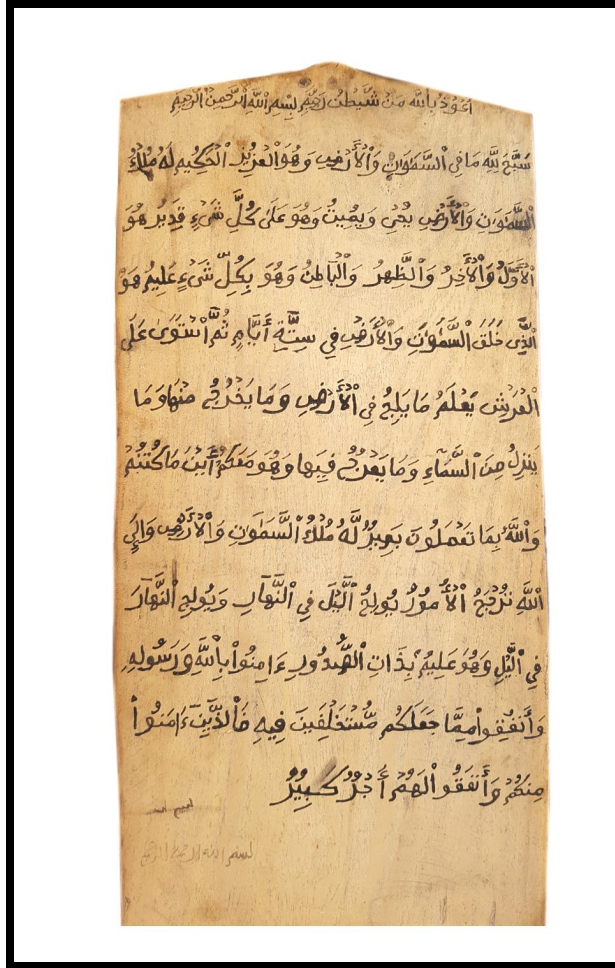 اَعُوذُ بِاَللَّهِ مَنْ شَّيْطٰنُ رَجِيمِ بِسْمِ اِ۬للَّهِ اِ۬لرَّحْمٰنِ اِ۬لرَّحِيمِ
سَبَّحَ لِلَّهِ مَا فِي اَ۬لسَّمَٰوَٰتِ وَالْأَرْضِ وَهُوَ اَ۬لْعَزِيزُ اَ۬لْحَكِيمِ لَهُ مُلْكُ
اَ۬لسَّمَٰوَٰتِ وَالْأَرْضِ يُحْيِ وَيُمِيتُ وَهُوَ عَلَىٰ كُلِّ شَيْءٍ قَدِيرٌ هُوَ
اَ۬لْأَوَّلُ وَالْأَخِرُ وَالظَّهِرُ وَالْبَاطِنُ وَهُوَ بِكُلِّ شَيْءٍ عَلِيمٌ هُوَ
اَ۬لَّذِي خَلَقَ اَ۬لسَّمَٰوَٰتِ وَالْأَرْضِ فِي سِتَّةِ أَيَّامٍ ثُمَّ اَ۪سْتَوَىٰ عَلَى
اَ۬لْعَرْشِ يَعْلَمُ مَا يَلِجُ فِي اِ۬لْأَرْضِ وَمَا يَخْرُجُ مِنْهَا وَمَا
يَنزِلُ مِنَ اَ۬لسَّمَآءِ وَمَا يَعْرُجُ فِيهَا وَهُوَ مَعَكُمْ أَيْنَ مَا كُنْتُمْ
وَاللَّهُ بِمَا تَعْمَلُونَ بَصِيرٌ لَّهُ مُلْكُ اُ۬لسَّمَٰوَٰتِ وَالْأَرْضِ وَإِلَى
اَ۬للَّهِ تُرْجَعُ اُ۬لْأُمُورُ يُولِجُ اُ۬لَّيْلَ فِي اِ۬لنَّهَارِ وَيُولِجُ اُ۬لنَّهَارَ
فِي اِ۬لَّيْلِ وَهُوَ عَلِيمٌ بِذَاتِ اِ۬لصُّدُورِ ءَامِنُواْ بِاللَّهِ وَرَسُولِهِ
وَأَنفِقُواْ مِمَّا جَعَلَكُم مُّسْتَخْلَفِينَ فِيهِ فَالَّذِينَ ءَامَنُواْ
مِنكُمْ وَأَنفَقُواْ لَهُمْ أَجْرٌ كَبِيرٌ
بسم الله الرحمن الرحيم